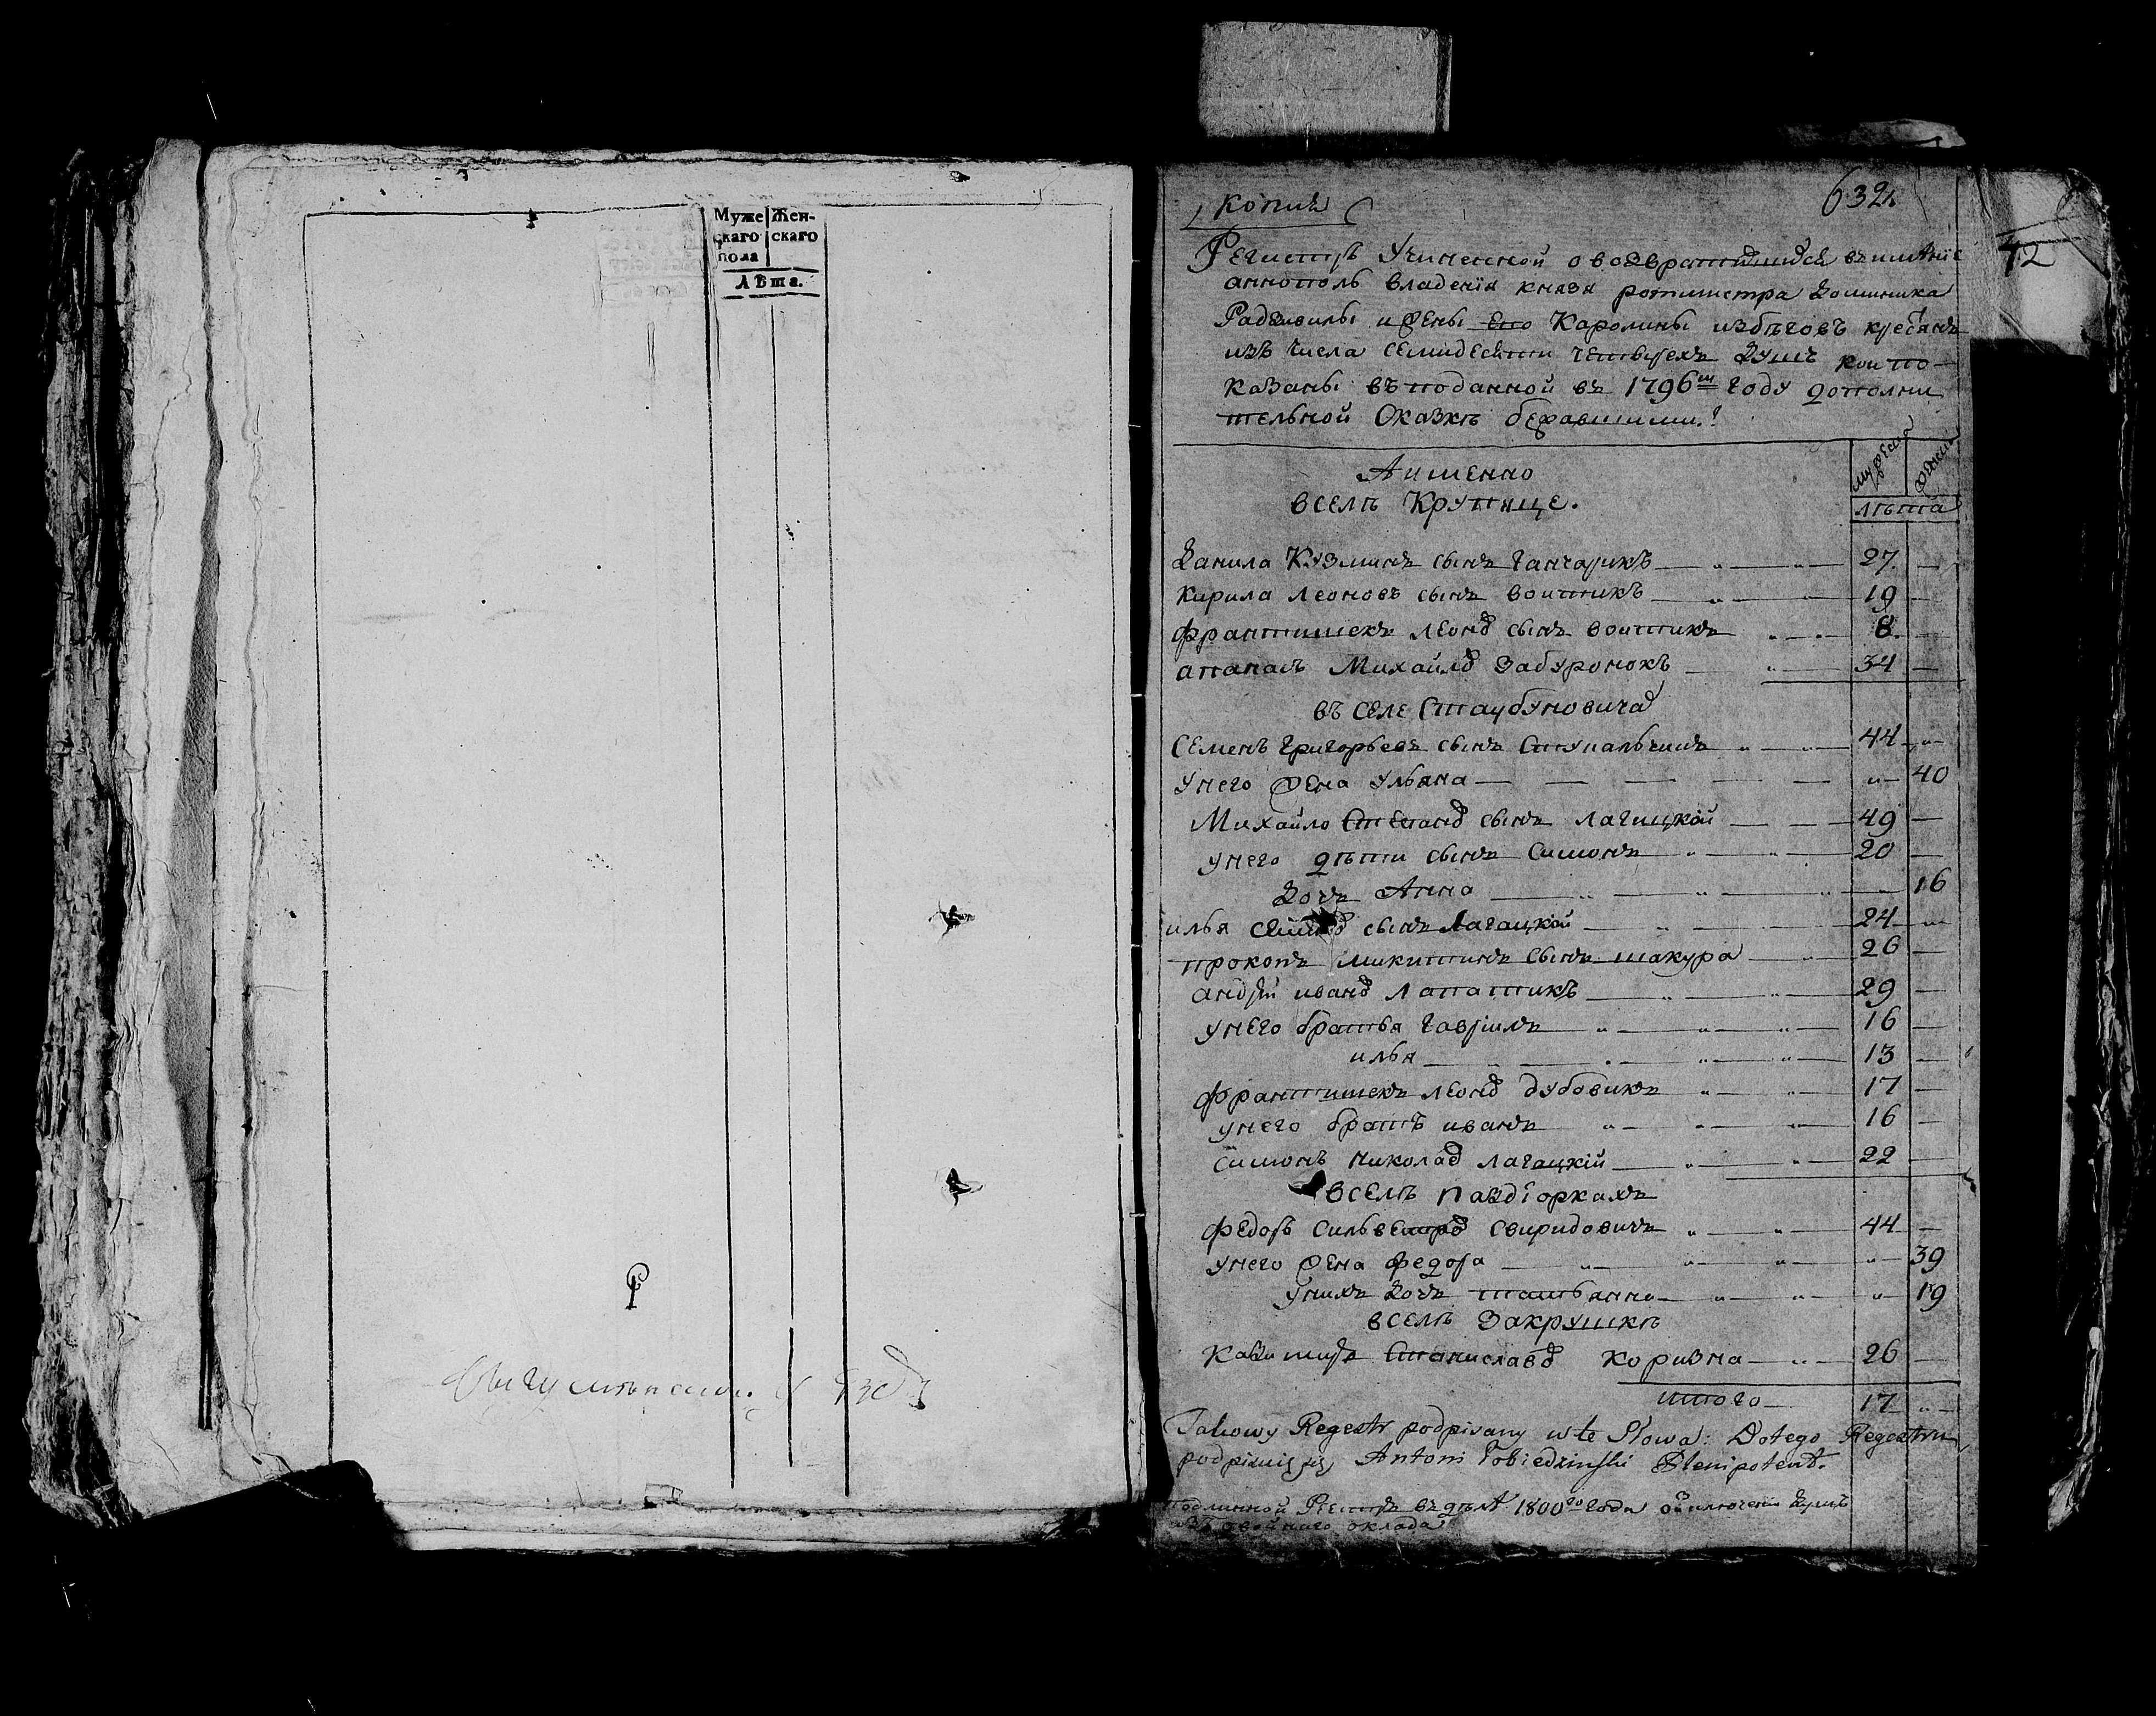 Муже
скаго
пола
Жен-
скаго
Лѣта.
копиѣ
632
42
Регистръ Учиненной о возвратившихся въ имѣніе
аннополь владенія князя ротмистра Доминика
Радзивилы и жены его Каролины изъ бѣговъ крестянъ
изъ числа семидесяти четырехъ душъ кои по-
казаны въ поданной въ 1796м году дополни
тельной Сказкѣ бежавшими.
мужеска
женска
лѣта
А именно
в селѣ Крупице.
Данила Кузминъ сынъ ганчарикъ 27.
Кирила леоновъ сынъ воитикъ 19
францишекъ леонов сынъ воитикъ 8.
апанасъ Михайлов Забуронокъ 34
въ селе Стаубуновичах
Семенъ григорьевъ сынъ Ступальчишъ 44
У него жена Ульяна 40
Михайло Степанов сынъ лагицкой 49
у него дѣти сынъ Симонъ 20
Дочъ Анна 16
илья сынъ Лагацкой 24
прокопъ микитинъ сынъ шакура 26
андрей иванов Лапатикъ 29
у него братья гаврилъ 16
илья 13
францишекъ леонов дубовикъ 17
у него братъ иванъ 16
симонъ николаев лагацкій 22
в селѣ Паздіоркахъ
федоръ сильвестров свиридовичъ 44
у него жена федора 39
у нихъ дочъ татьянна 19
в селѣ Закрушкѣ
Казимиръ Станиславов коризна 26
итого 17
Takowy Regestr podpisany w te Słowa: Do tego Regestru
podpisuię się Antoni Tobiedzinski Plenipotent.
подлинной Реестръ въ дѣлѣ 1800го года о исключеніи душъ
изъ оклада